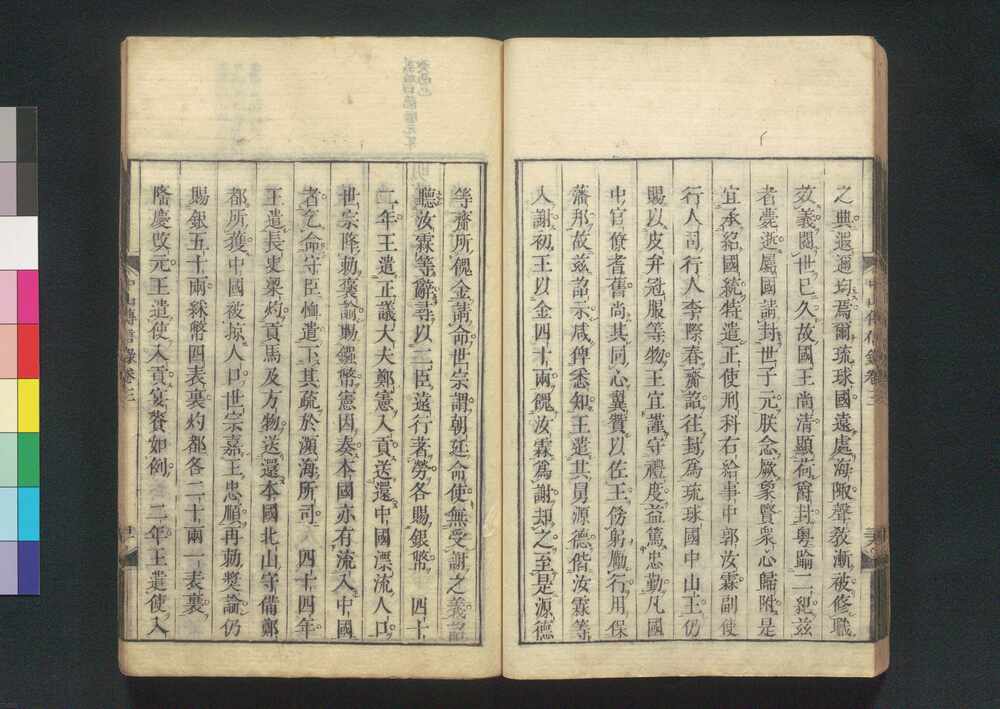 之典遐邇均焉爾琉球國遠處海陬聲教漸被修職
效義閱世已久故國王尚清顯荷爵封粵踰二紀茲
者薨逝屬國請封世子元朕念厥象賢衆心歸附是
宜承紹國統特遣正使刑科右給事中郭汝霖副使
行人司行人李際春齎詔往封爲琉球國中山王仍
賜以皮弁冠服等物王宜謹守禮度益篤忠勤凡國
中官僚耆舊尚其同心翼贊以佐王飭躬勵行用保
藩邦故茲詔示咸俾悉知王遣其舅源德偕汝霖等
入謝初王以金四十兩餽汝霖爲謝却之至是源德
中山傳信錄卷三
等齎所餽金請命世宗謂朝廷命使無受謝之義
聽汝霖等辭尋以二臣遠行著勞各賜銀幣 四十
二年王遣正議大夫鄭憲入貢送還中國漂流人口
世宗降勅褒諭賜鏹幣憲因奏本國亦有流入中國
者乞命守臣恤遣下其疏於瀕海所司 四十四年
王遣長史梁灼貢馬及方物送還本國北山守備鄭
都所獲中國被掠人口世宗嘉王忠順再勅獎諭仍
賜銀五十兩綵幣四表裏灼都各二十兩一表裏
隆慶改元王遣使入貢宴賚如例 二年王遣使入
中山傳信錄卷三